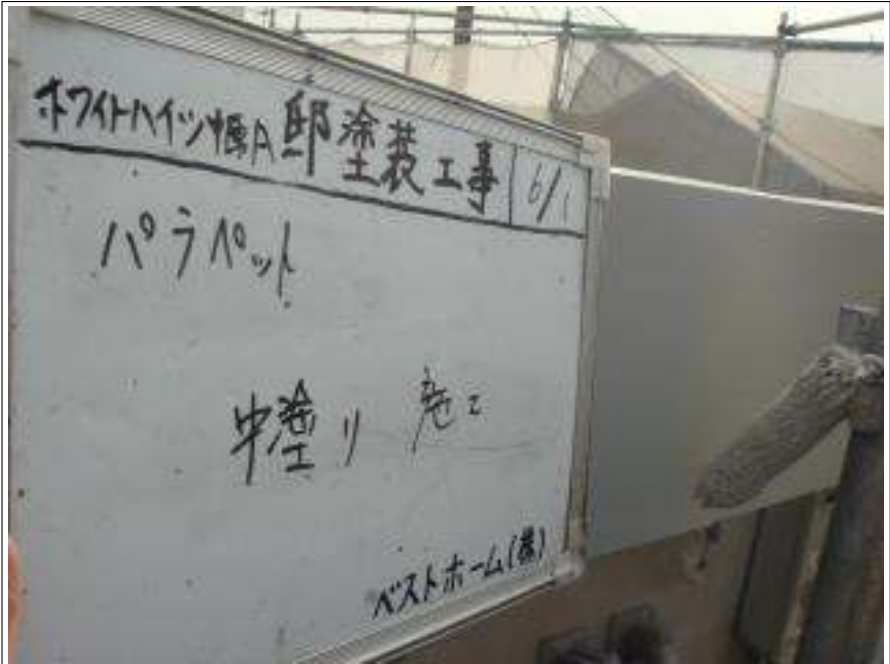 ホワイトハイツ A 邸塗装工事
6/1
パラペット
中塗り 施工
ベストホーム(株)